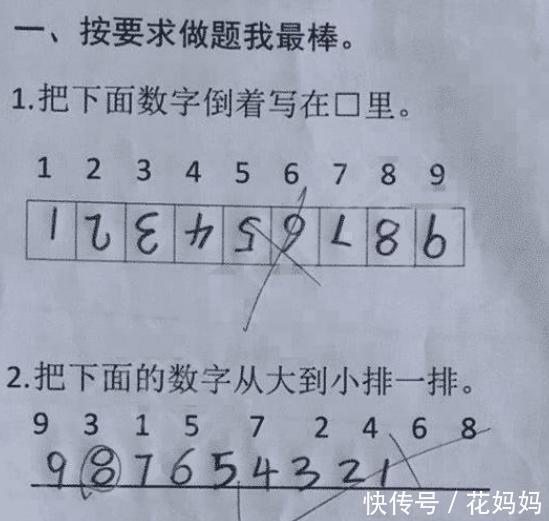 一、按要求做题我最棒。
1.把下面数字倒着写在□里。
1 2 3 4 5 6 7 8 9
1 2 3 4 5 6 7 8 9
2.把下面的数字从大到小排一排。
9 3 1 5 7 2 4 6 8
9 8 7 6 5 4 3 2 1
快传号 / 花妈妈